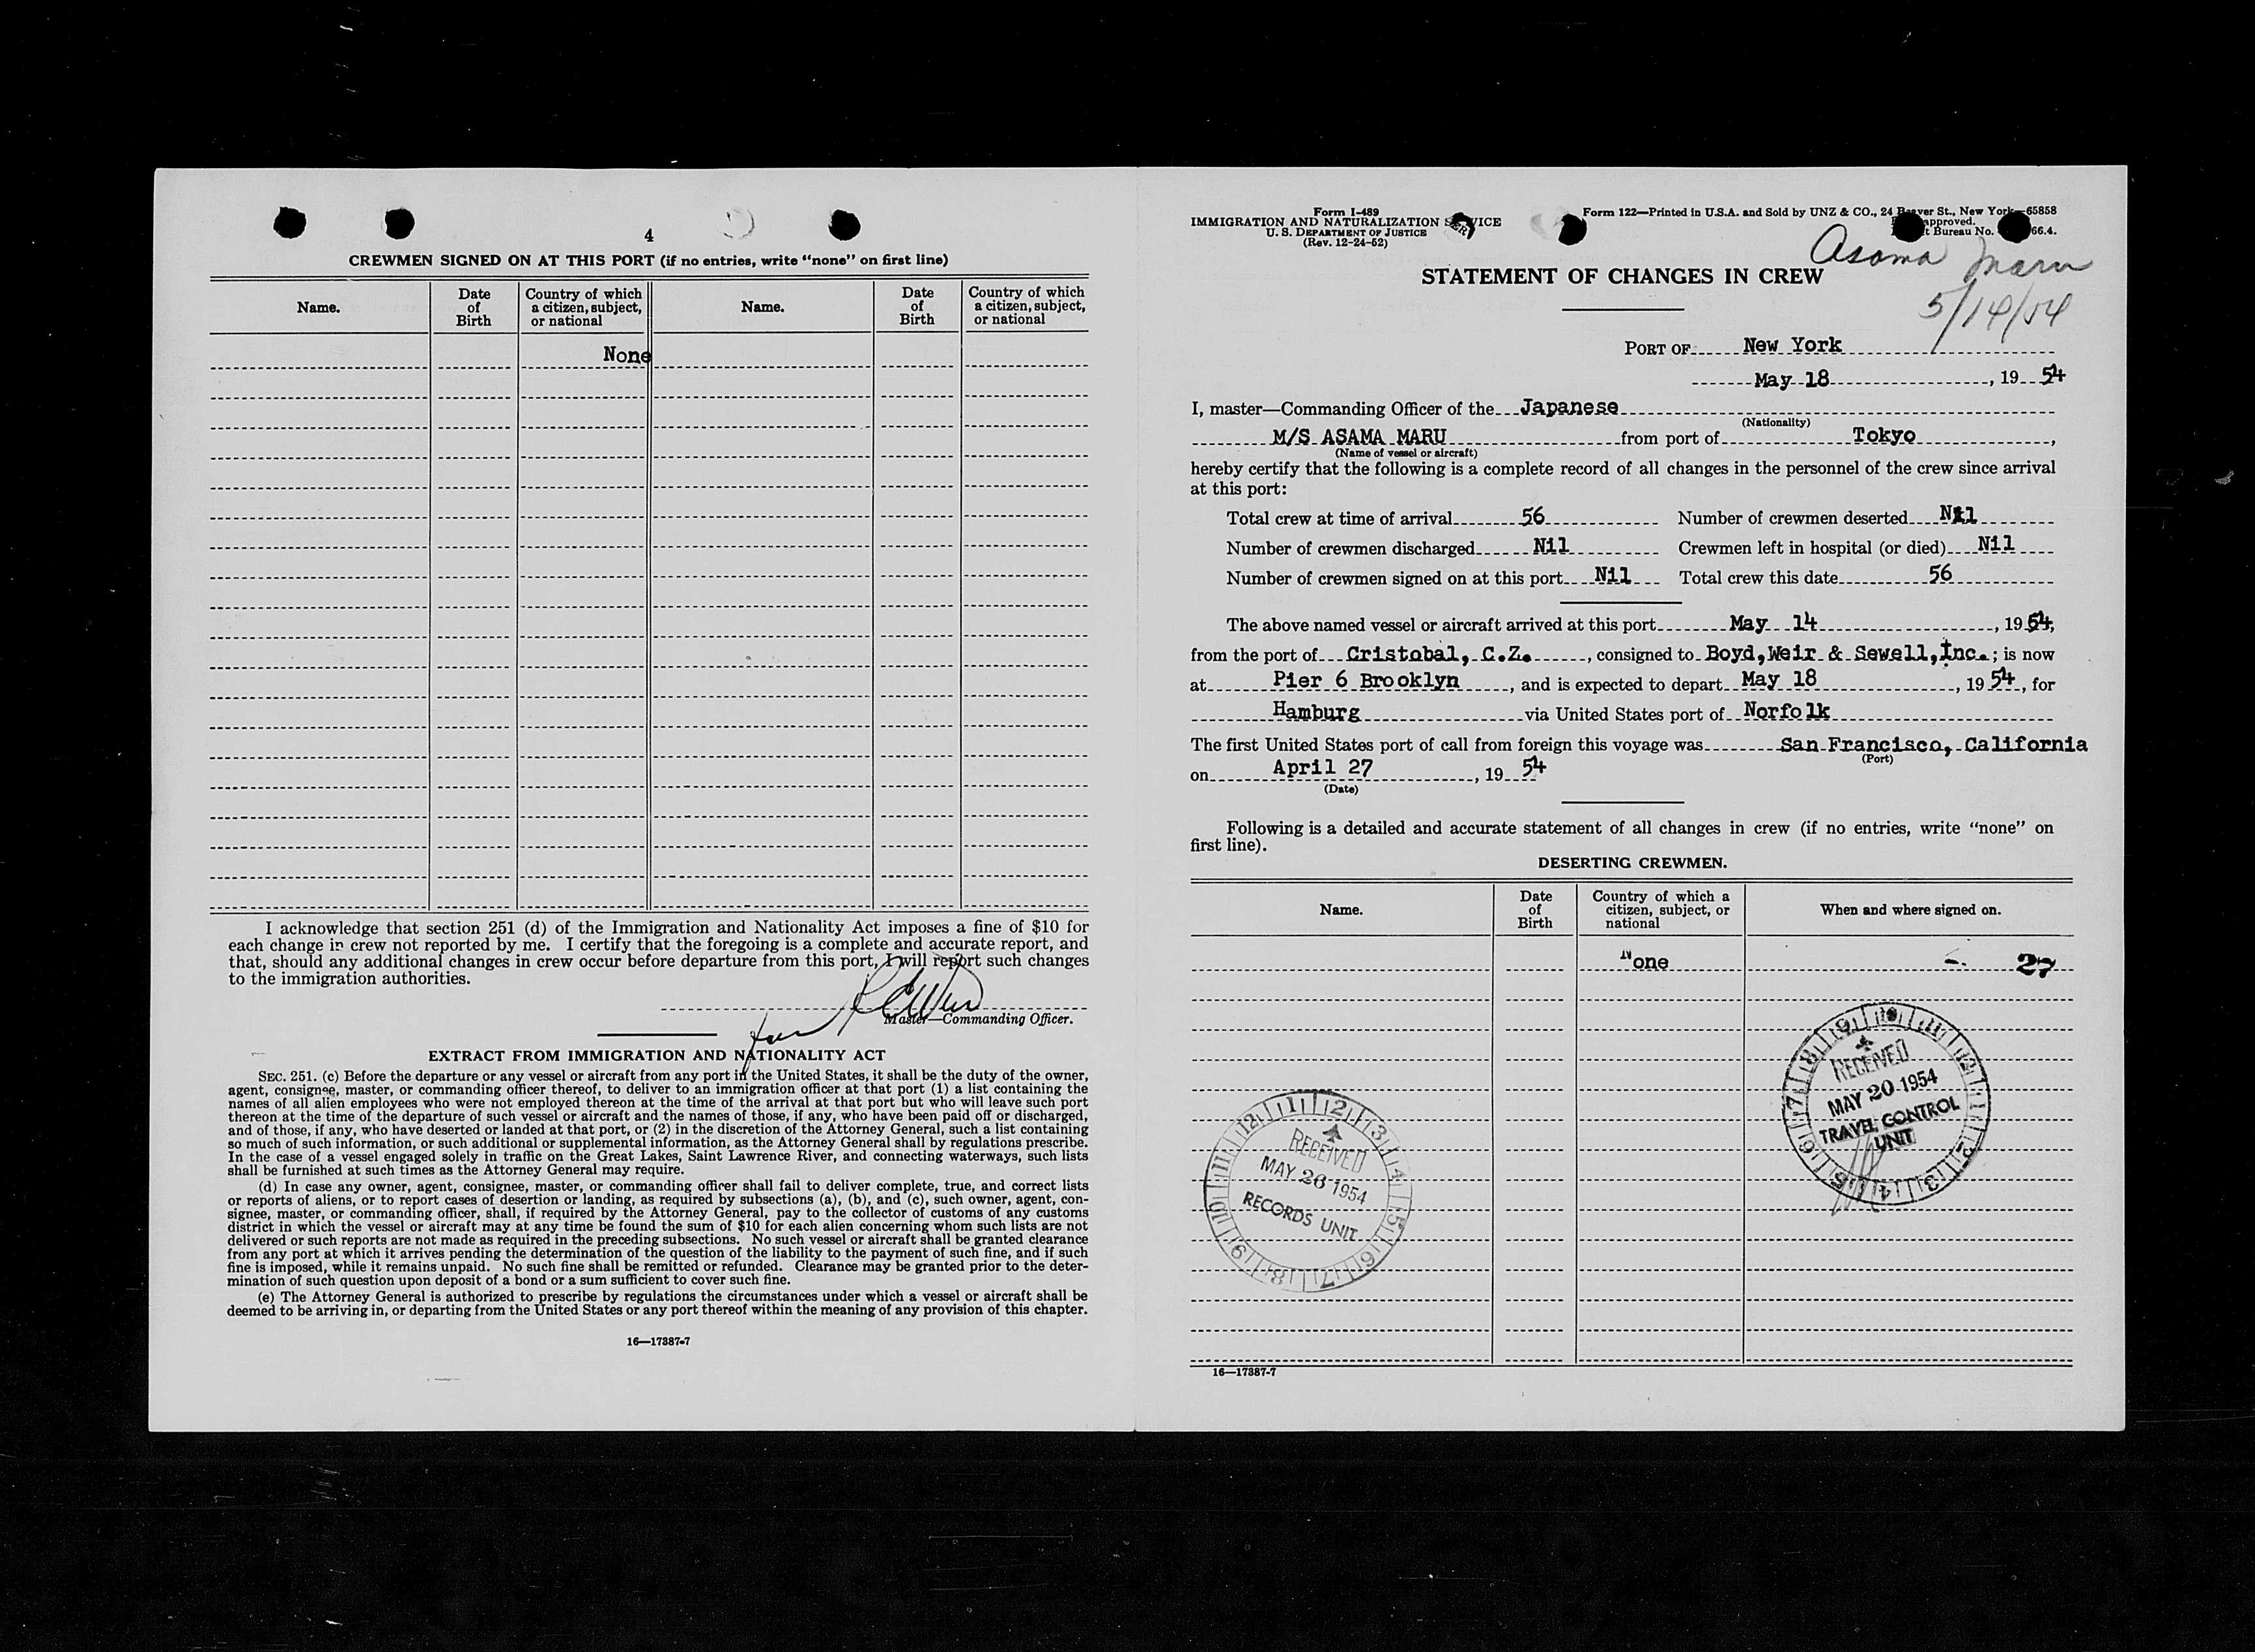 4
CREWMEN SIGNED ON AT THIS PORT (if no entries, write "none" on first line)
Name. Date of Birth Country of which a citizen, subject, or national Name. Date of Birth Country of which a citizen, subject, or national
None
I acknowledge that section 251 (d) of the Immigration and Nationality Act imposes a fine of $10 for
each change in crew not reported by me. I certify that the foregoing is a complete and accurate report, and
that, should any additional changes in crew occur before departure from this port, I will report such changes
to the immigration authorities.
Master—Commanding Officer.
EXTRACT FROM IMMIGRATION AND NATIONALITY ACT
SEC. 251. (c) Before the departure or any vessel or aircraft from any port in the United States, it shall be the duty of the owner,
agent, consignee, master, or commanding officer thereof, to deliver to an immigration officer at that port (1) a list containing the
names of all alien employees who were not employed thereon at the time of the arrival at that port but who will leave such port
thereon at the time of the departure of such vessel or aircraft and the names of those, if any, who have been paid off or discharged,
and of those, if any, who have deserted or landed at that port, or (2) in the discretion of the Attorney General, such a list containing
so much of such information, or such additional or supplemental information, as the Attorney General shall by regulations prescribe.
In the case of a vessel engaged solely in traffic on the Great Lakes, Saint Lawrence River, and connecting waterways, such lists
shall be furnished at such times as the Attorney General may require.
(d) In case any owner, agent, consignee, master, or commanding officer shall fail to deliver complete, true, and correct lists
or reports of aliens, or to report cases of desertion or landing, as required by subsections (a), (b), and (c), such owner, agent, con-
signee, master, or commanding officer, shall, if required by the Attorney General, pay to the collector of customs of any customs
district in which the vessel or aircraft may at any time be found the sum of $10 for each alien concerning whom such lists are not
delivered or such reports are not made as required in the preceding subsections. No such vessel or aircraft shall be granted clearance
from any port at which it arrives pending the determination of the question of the liability to the payment of such fine, and if such
fine is imposed, while it remains unpaid. No such fine shall be remitted or refunded. Clearance may be granted prior to the deter-
mination of such question upon deposit of a bond or a sum sufficient to cover such fine.
(e) The Attorney General is authorized to prescribe by regulations the circumstances under which a vessel or aircraft shall be
deemed to be arriving in, or departing from the United States or any port thereof within the meaning of any provision of this chapter.
16—17387-7
Form I-489
IMMIGRATION AND NATURALIZATION SERVICE
U. S. DEPARTMENT OF JUSTICE
(Rev. 12-24-52)
Form 122—Printed in U.S.A. and Sold by UNZ & CO., 24 Beaver St., New York—65858
approved.
Bureau No. 66.4.
Asama Maru
5/14/54
STATEMENT OF CHANGES IN CREW
PORT OF New York
May 18, 1954
I, master—Commanding Officer of the Japanese
(Nationality)
M/S ASAMA MARU from port of Tokyo,
(Name of vessel or aircraft)
hereby certify that the following is a complete record of all changes in the personnel of the crew since arrival
at this port:
Total crew at time of arrival 56 Number of crewmen deserted Nil
Number of crewmen discharged Nil Crewmen left in hospital (or died) Nil
Number of crewmen signed on at this port Nil Total crew this date 56
The above named vessel or aircraft arrived at this port May 14, 1954,
from the port of Cristobal, C.Z., consigned to Boyd,Weir & Sewell,Inc.; is now
at Pier 6 Brooklyn, and is expected to depart May 18, 1954, for
Hamburg via United States port of Norfolk
The first United States port of call from foreign this voyage was San Francisco, California
(Port)
on April 27, 1954
(Date)
Following is a detailed and accurate statement of all changes in crew (if no entries, write "none" on
first line).
DESERTING CREWMEN.
Name. Date of Birth Country of which a citizen, subject, or national When and where signed on.
None 27
RECEIVED
MAY 20 1954
TRAVEL CONTROL
UNIT
RECEIVED
MAY 26 1954
RECORDS UNIT
16—17387-7